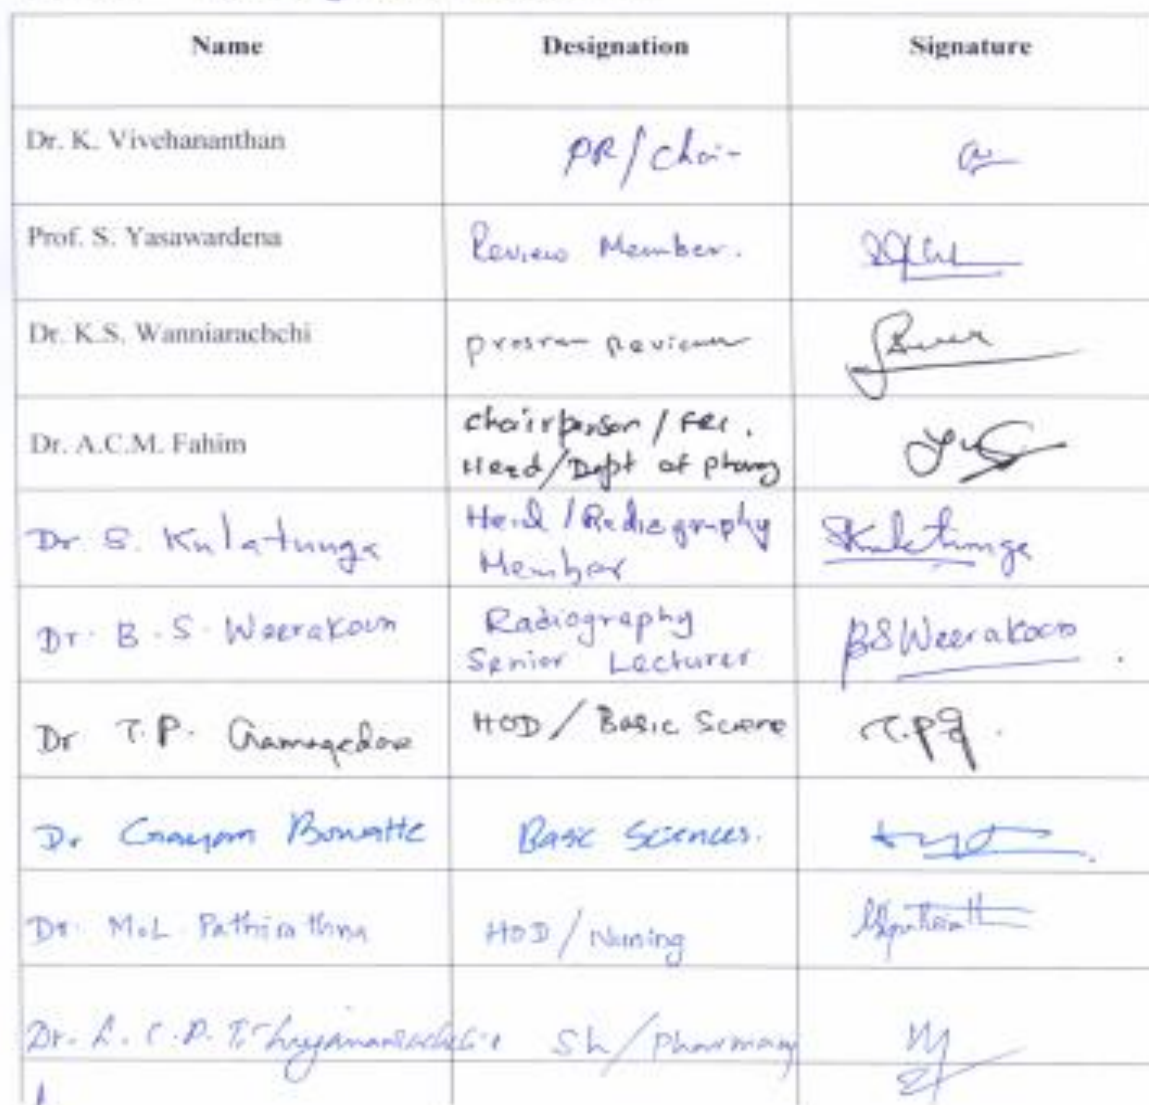 Name Designation Signature
Dr. K. Vivehananthan PR/Chair
Prof. S. Yasawardena Review Member.
Dr. K.S. Wanniarachchi program Reviewer
Dr. A.C.M. Fahim Chairperson /
Head/Dept of Pharmacy
Dr. S. Kulatunga Head / Radiography
Member SKulatunga
Dr. B. S. Weerakoon Radiography
Senior Lecturer BSWeerakoon
Dr T.P. Gamagedara HOD / Basic Science T.P.G.
Dr Gayan Bowatte Basic Sciences.
Dr. M.L. Pathirathna HOD / Nursing
Dr. SL/Pharmacy